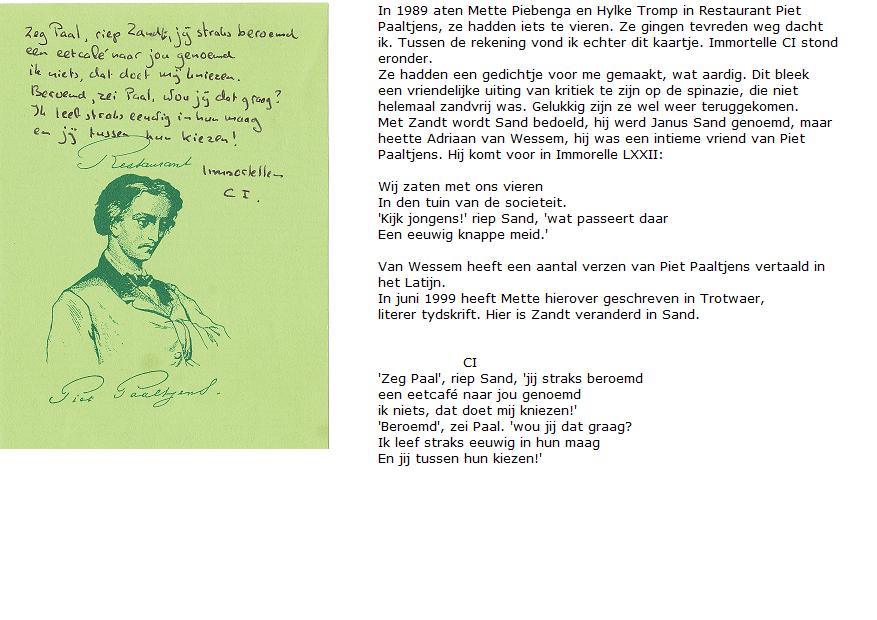 Zeg Paal, riep Zandt, jij straks beroemd
een eetcafé naar jou genoemd
ik niets, dat doet mij kniezen.
Beroemd, zei Paal. Wou jij dat graag?
Ik leef straks eeuwig in hun maag
en jij tussen hun kiezen!
Restaurant
Immortellen
CI.
Piet Paaltjens.
In 1989 aten Mette Piebenga en Hylke Tromp in Restaurant Piet
Paaltjens, ze hadden iets te vieren. Ze gingen tevreden weg dacht
ik. Tussen de rekening vond ik echter dit kaartje. Immortelle CI stond
eronder.
Ze hadden een gedichtje voor me gemaakt, wat aardig. Dit bleek
een vriendelijke uiting van kritiek te zijn op de spinazie, die niet
helemaal zandvrij was. Gelukkig zijn ze wel weer teruggekomen.
Met Zandt wordt Sand bedoeld, hij werd Janus Sand genoemd, maar
heette Adriaan van Wessem, hij was een intieme vriend van Piet
Paaltjens. Hij komt voor in Immorelle LXXII:
Wij zaten met ons vieren
In den tuin van de societeit.
'Kijk jongens!' riep Sand, 'wat passeert daar
Een eeuwig knappe meid.'
Van Wessem heeft een aantal verzen van Piet Paaltjens vertaald in
het Latijn.
In juni 1999 heeft Mette hierover geschreven in Trotwaer,
literer tydskrift. Hier is Zandt veranderd in Sand.
CI
'Zeg Paal', riep Sand, 'jij straks beroemd
een eetcafé naar jou genoemd
ik niets, dat doet mij kniezen!'
'Beroemd', zei Paal. 'wou jij dat graag?
Ik leef straks eeuwig in hun maag
En jij tussen hun kiezen!'